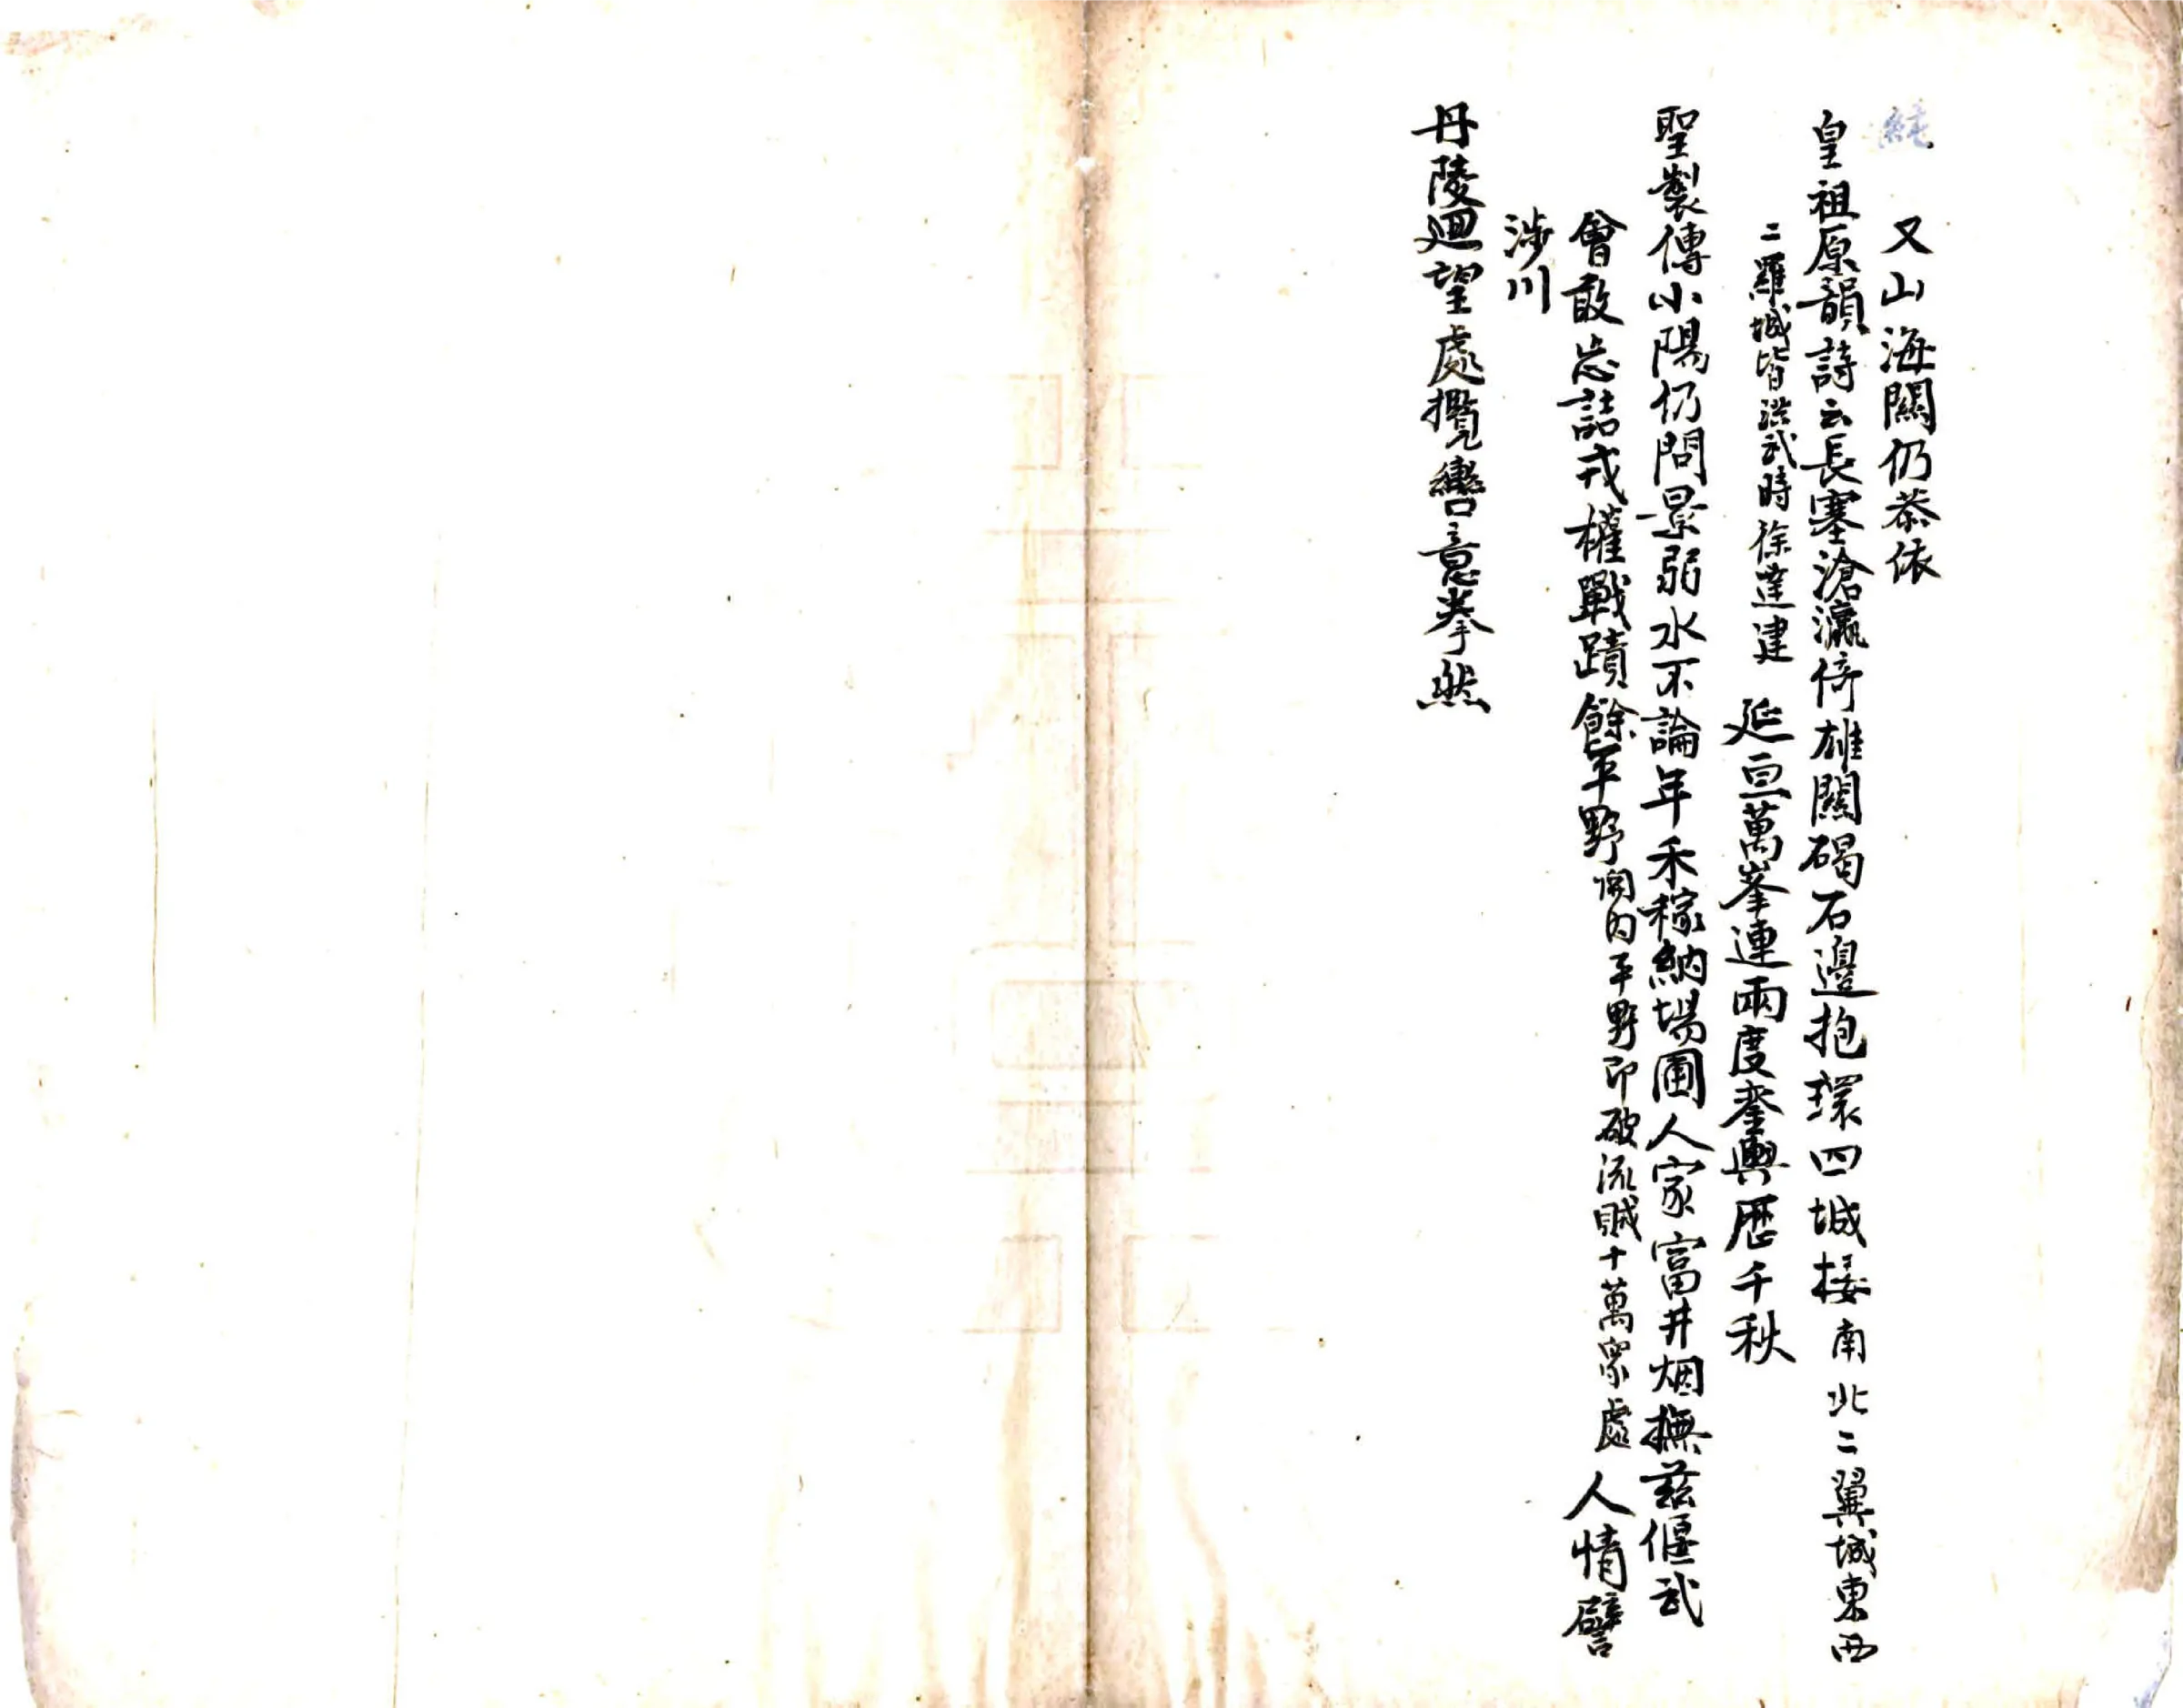 純
又山海關仍恭依
皇祖原韻詩云長塞滄瀛倚雄關碣石邊抱環四城接南北二翼城東西
二羅城皆洪武時徐達建延亘萬峯連兩度鑾輿歷千秋
聖製傳小陽仍問景弱水不論年禾稼納場圃人家富井烟撫茲偃武
會敢忘詰戎權戰蹟餘平野關內平野即破流賊十萬眾處人情譬
涉川
丹陵廻望處攬轡意拳然